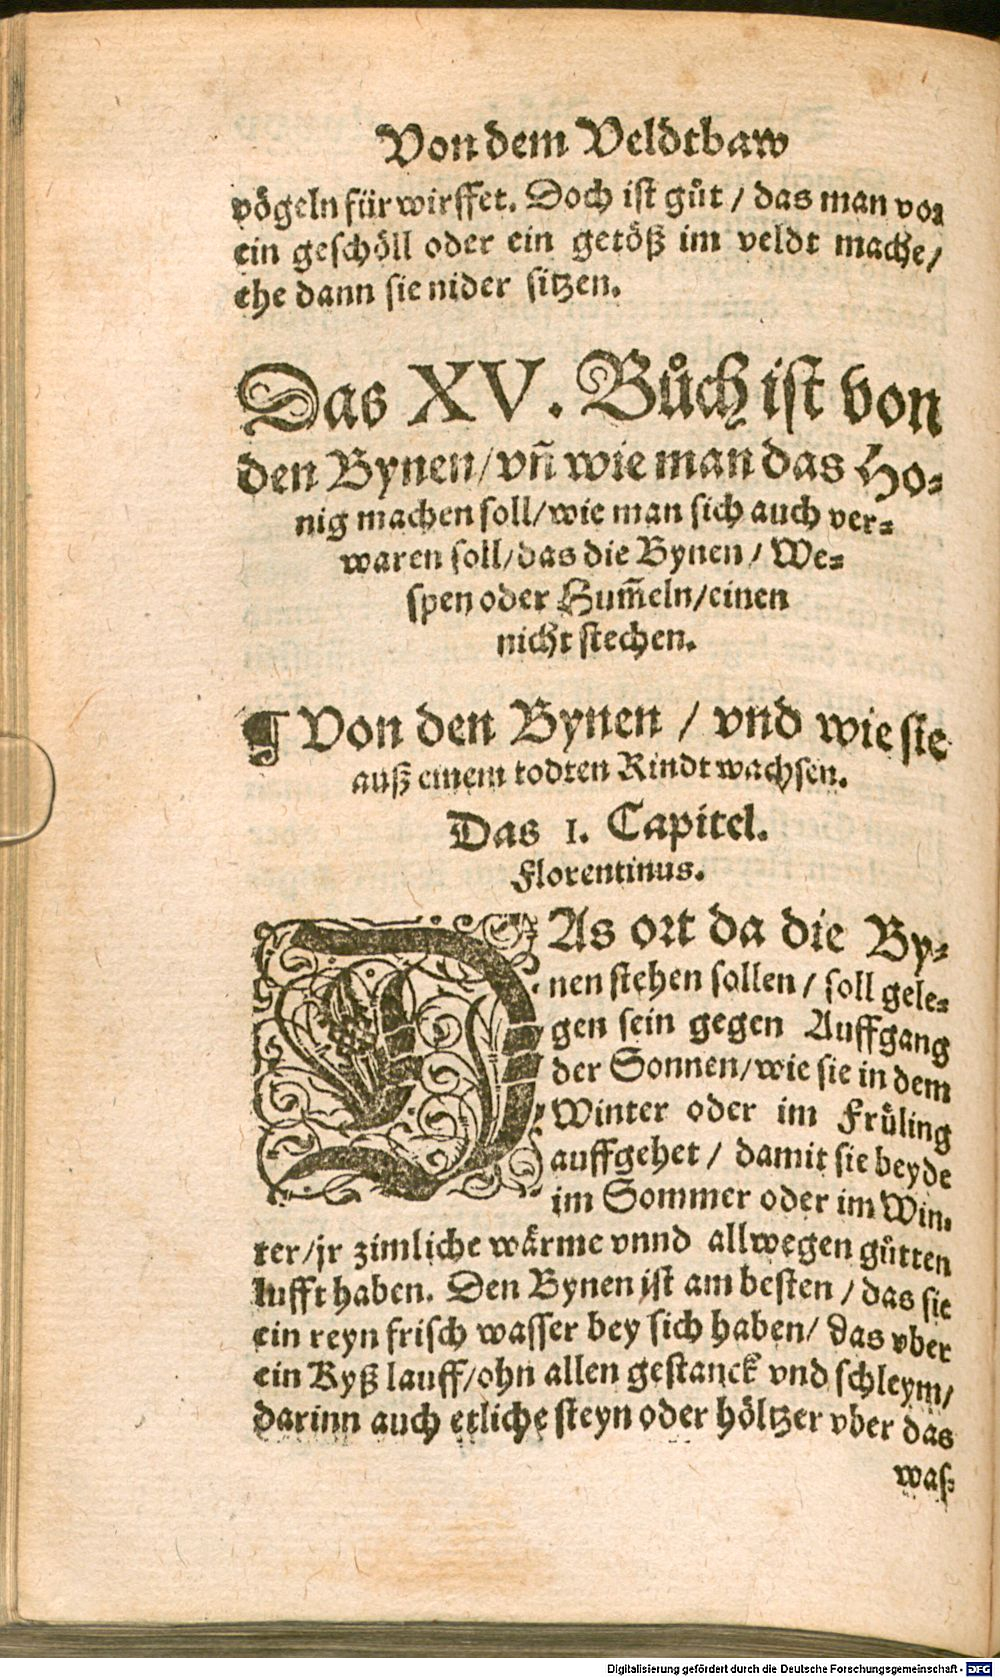 Von dem Veldtbaw
vögeln fürwirffet. Doch ist gůt / das man vor
ein geschöll oder ein getöß im veldt mache/
ehe dann sie nider sitzen.
Das XV. Bůch ist von
den Bynen/vñ wie man das Ho⸗
nig machen soll/wie man sich auch ver⸗
waren soll/das die Bynen / We⸗
spen oder Hum̄eln/einen
nicht stechen.
¶ Von den Bynen / vnd wie sie
auß einem todten Rindt wachsen.
Das 1. Capitel.
Florentinus.
DAs ort da die By⸗
nen stehen sollen / soll gele⸗
gen sein gegen Auffgang
der Sonnen/wie sie in dem
Winter oder im Früling
auffgehet / damit sie beyde
im Sommer oder im Win⸗
ter/jr zimliche wärme vnnd allwegen gůtten
lufft haben. Den Bynen ist am besten / das sie
ein reyn frisch wasser bey sich haben/ das vber
ein Kyß lauff/ohn allen gestanck vnd schleym/
darinn auch etliche steyn oder höltzer vber das
was⸗
Digitalisierung gefördert durch die Deutsche Forschungsgemeinschaft - DFG